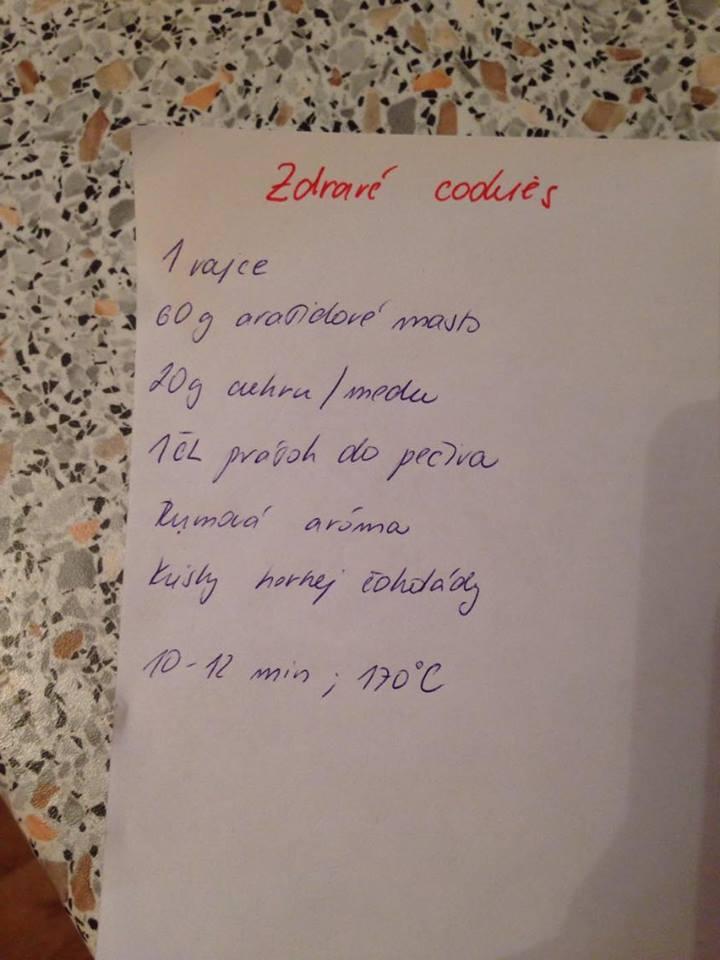 Zdravé cookies
1 vajce
60g arašidové maslo
20g cukru/medu
1ČL prášok do pečiva
Rumová aróma
Kúsky horkej čokolády
10-12 min ; 170°C